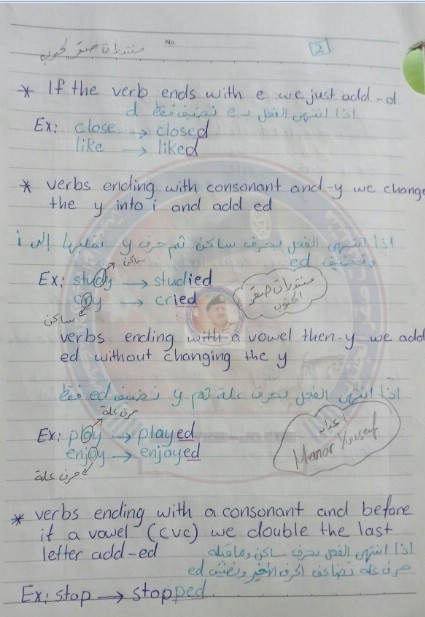 منتديات صقر الجنوب
No.
2
* If the verb ends with e we just add -d
اذا انتهى الفعل بـ e نضيف فقط d
Ex: close → closed
like → liked
* verbs ending with consonant and -y we change
the y into i and add ed
اذا انتهى الفعل بحرف ساكن ثم حرف y نقلبها إلى i
ونضيف ed
ساكن
Ex: study → studied
cry → cried
ساكن
منتديات صقر
الجنوب
verbs ending with a vowel then -y we add
ed without changing the y
اذا انتهى الفعل بحرف علة ثم y نضيف ed فقط
حرف علة
Ex: play → played
enjoy → enjoyed
حرف علة
اعداد
Manar Yussef
* verbs ending with a consonant and before
it a vowel (cvc) we double the last
letter add -ed
اذا انتهى الفعل بحرف ساكن وماقبله
حرف علة نضاعف الحرف الأخير ونضيف ed
Ex: stop → stopped